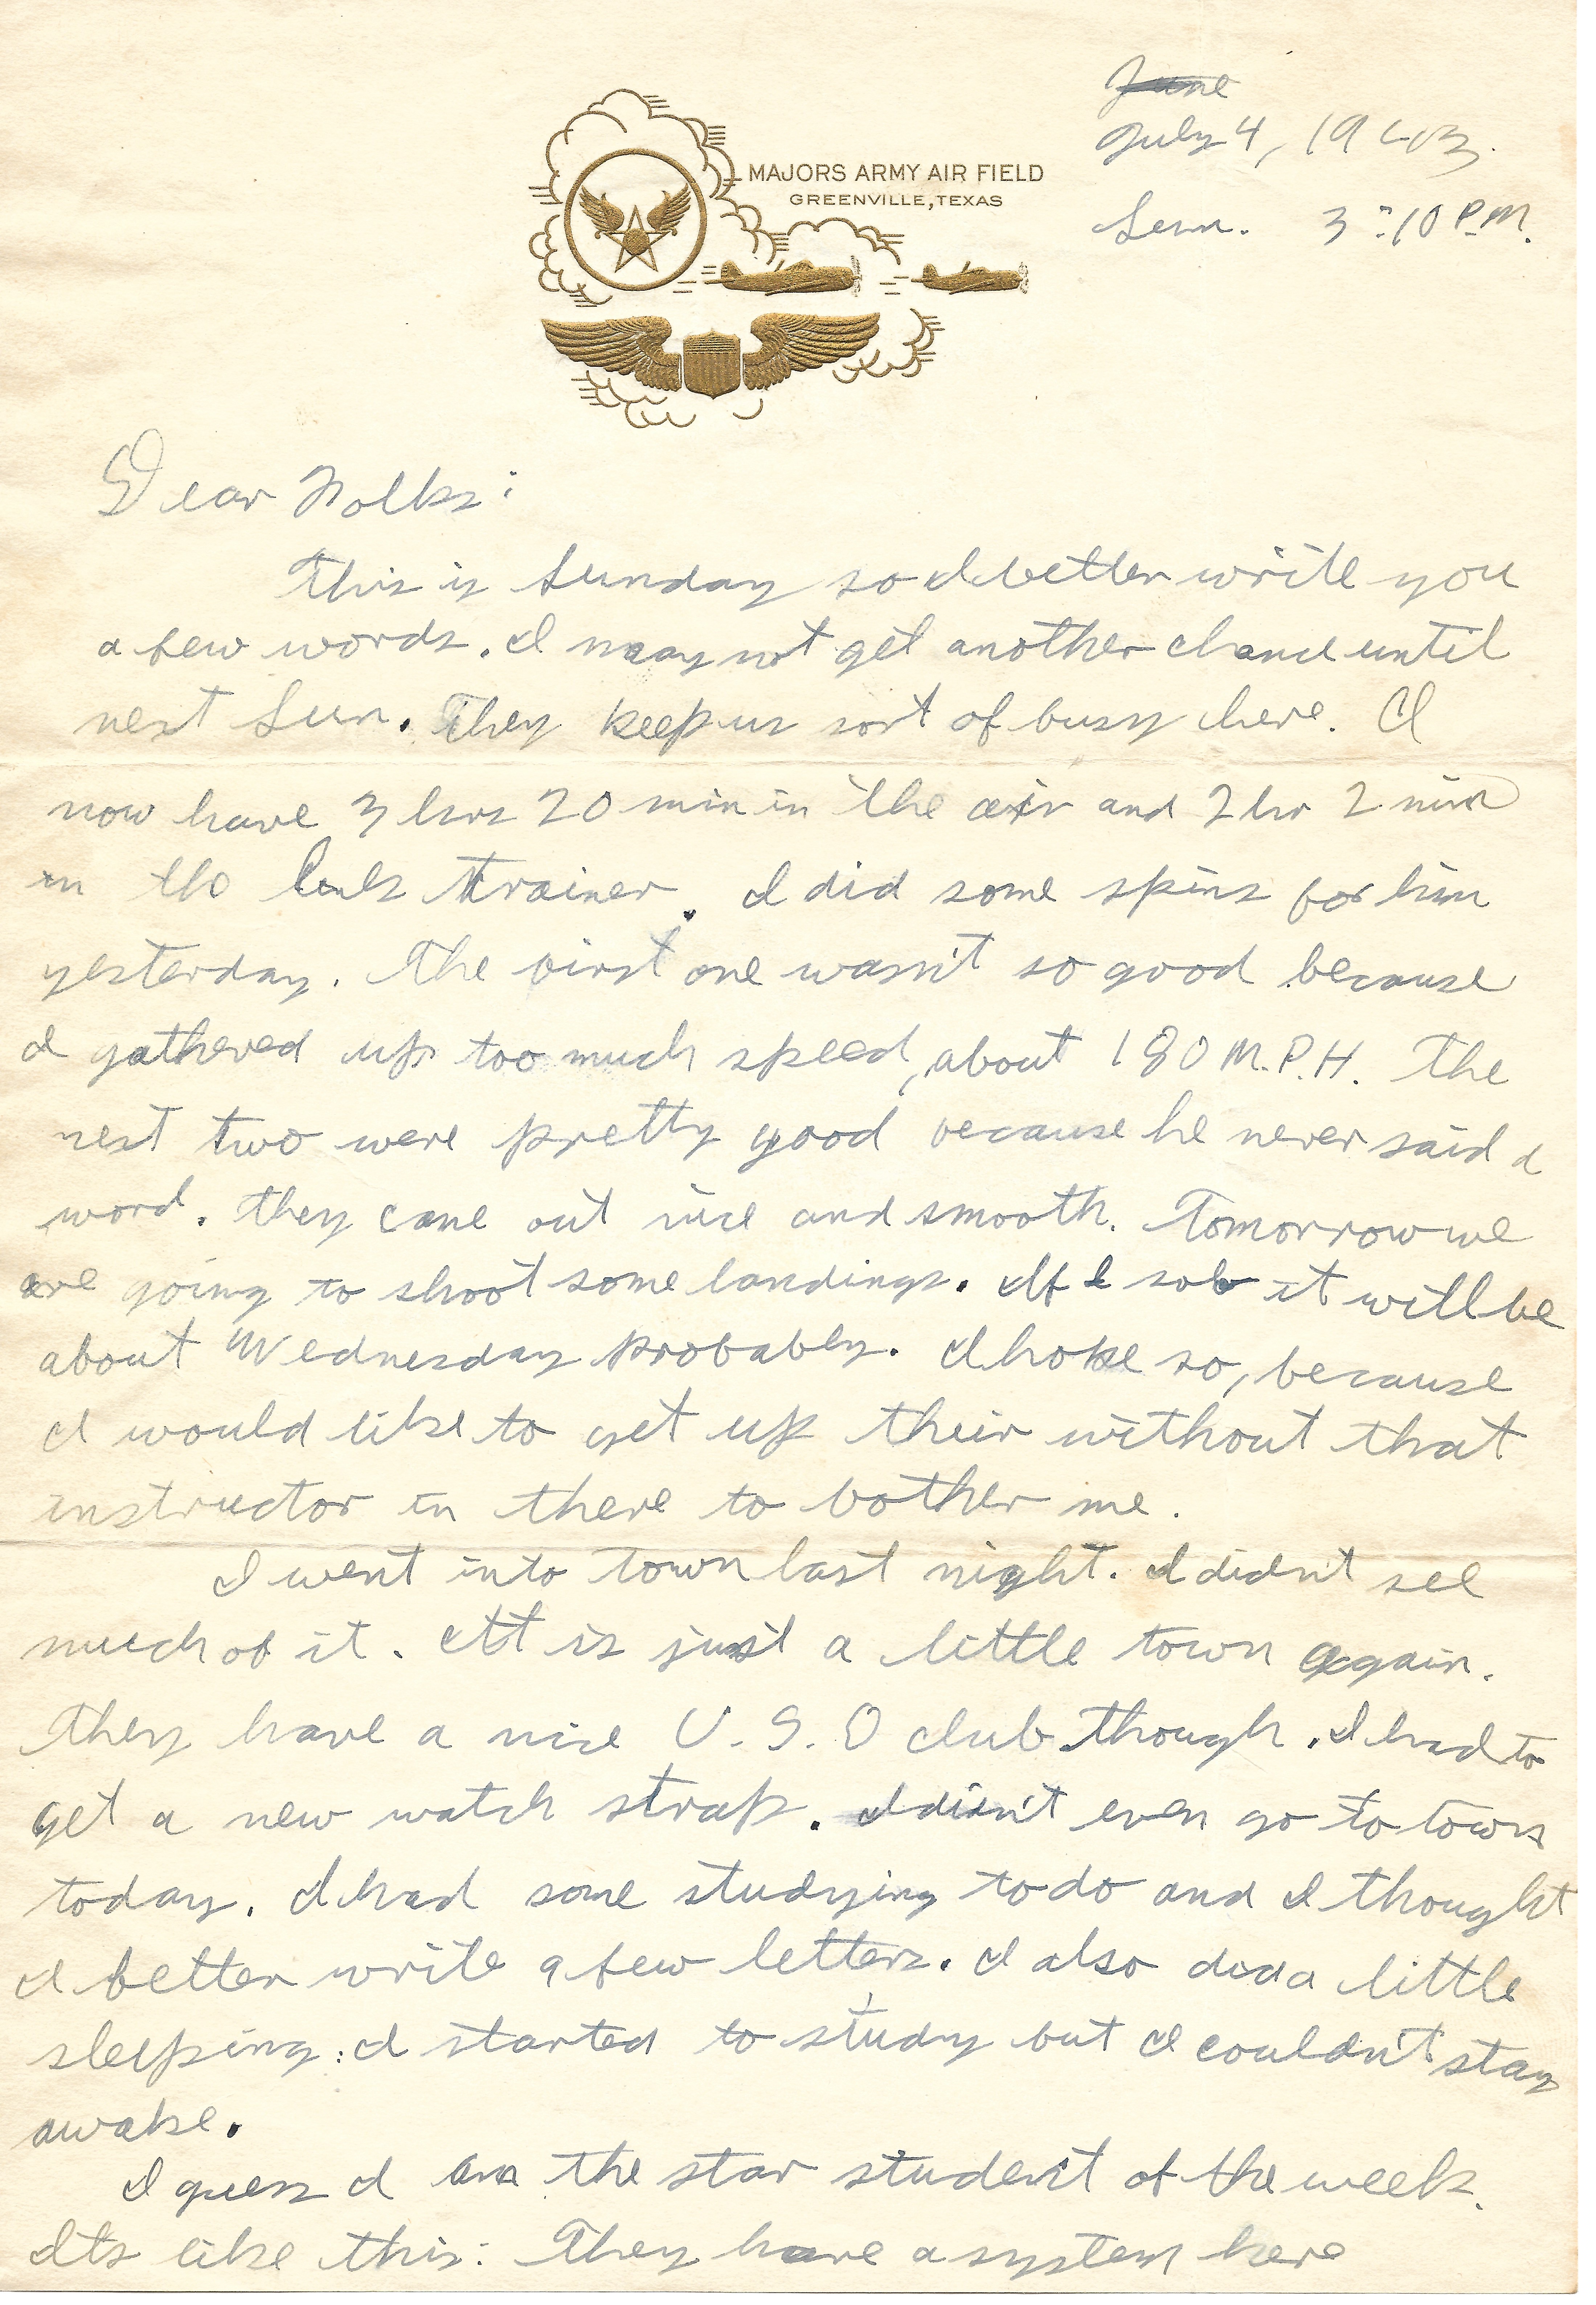 June
July 4, 1943.
MAJORS ARMY AIR FIELD
GREENVILLE, TEXAS
Sun. 3:10 P.M.
Dear Folks:
This is Sunday so I better write you
a few words. I may not get another chance until
next Sun. They keep us sort of busy here. I
now have 3 hrs 20 min in the air and 2 hr 2 min
in the link trainer. I did some spins for him
yesterday. The first one wasn't so good because
I gathered up too much speed, about 180 M.P.H. The
next two were pretty good because he never said a
word. They came out nice and smooth. Tomorrow we
are going to shoot some landings. If I solo it will be
about Wednesday probably. I hope so, because
I would like to get up their without that
instructor in there to bother me.
I went into town last night. I didn't see
much of it. It is just a little town again.
They have a nice U.S.O club though. I had to
get a new watch strap. I didn't even go to town
today. I had some studying to do and I thought
I better write a few letters. I also did a little
sleeping: I started to study but I couldn't stay
awake.
I guess I am the star student of the week.
Its like this: They have a system here